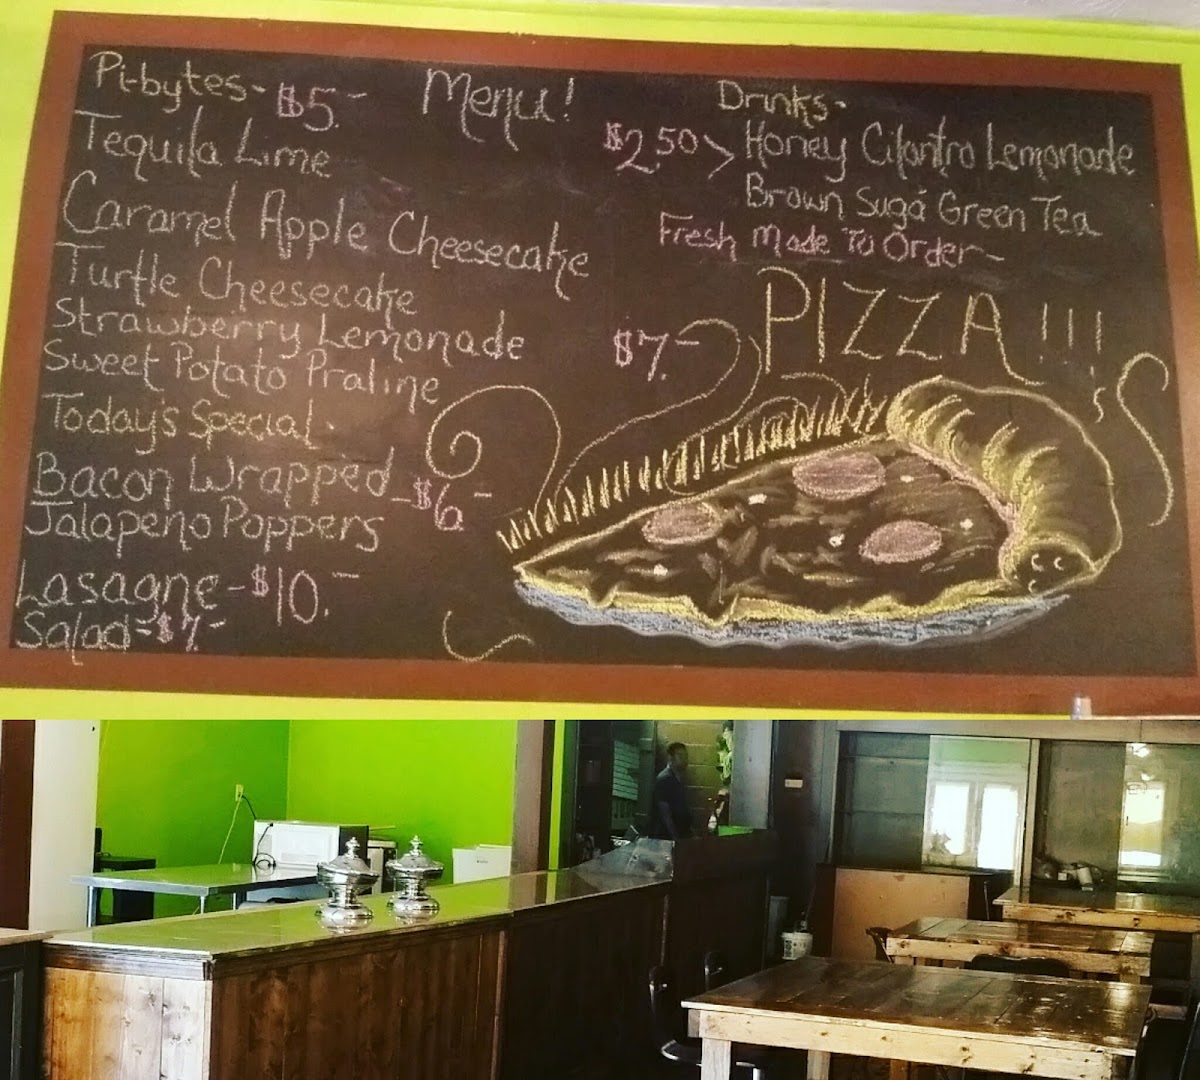 Menu!
Pi-bytes- $5.-
Tequila Lime
Caramel Apple Cheesecake
Turtle Cheesecake
Strawberry Lemonade
Sweet Potato Praline
Today's Special-
Bacon Wrapped
Jalapeño Poppers -$6.-
Lasagne-$10.-
Salad-$7.-
Drinks-
$2.50> Honey Cilantro Lemonade
Brown Sugá Green Tea
Fresh Made To Order-
PIZZA!!!
$7.-